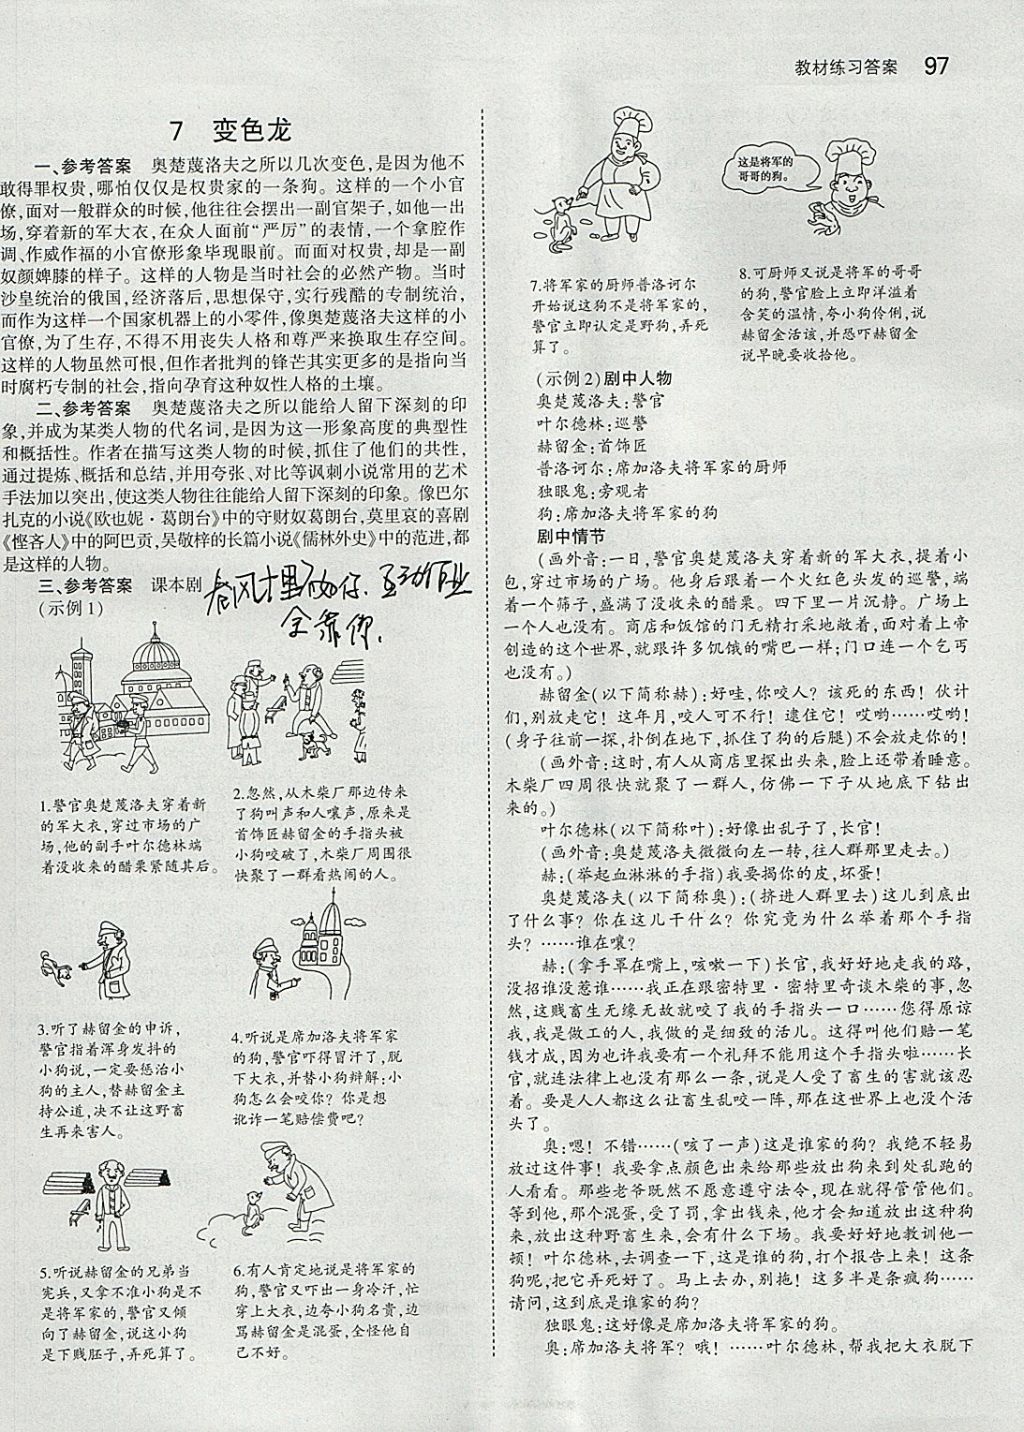 教材练习答案 97
7 变色龙
一、参考答案 奥楚蔑洛夫之所以几次变色,是因为他不
敢得罪权贵,哪怕仅仅是权贵家的一条狗。这样的一个小官
僚,面对一般群众的时候,他往往会摆出一副官架子,如他一出
场,穿着新的军大衣,在众人面前“严厉”的表情,一个拿腔作
调、作威作福的小官僚形象毕现眼前。而面对权贵,却是一副
奴颜婢膝的样子。这样的人物是当时社会的必然产物。当时
沙皇统治的俄国,经济落后,思想保守,实行残酷的专制统治,
而作为这样一个国家机器上的小零件,像奥楚蔑洛夫这样的小
官僚,为了生存,不得不用丧失人格和尊严来换取生存空间。
这样的人物虽然可恨,但作者批判的锋芒其实更多的是指向当
时腐朽专制的社会,指向孕育这种奴性人格的土壤。
二、参考答案 奥楚蔑洛夫之所以能给人留下深刻的印
象,并成为某类人物的代名词,是因为这一形象高度的典型性
和概括性。作者在描写这类人物的时候,抓住了他们的共性,
通过提炼、概括和总结,并用夸张、对比等讽刺小说常用的艺术
手法加以突出,使这类人物往往能给人留下深刻的印象。像巴尔
扎克的小说《欧也妮·葛朗台》中的守财奴葛朗台,莫里哀的喜剧
《悭吝人》中的阿巴贡,吴敬梓的长篇小说《儒林外史》中的范进,都
是这样的人物。
三、参考答案 课本剧
(示例1)
春风十里 不如你、
作业
全靠你、
1.警官奥楚蔑洛夫穿着新
的军大衣,穿过市场的广
场,他的副手叶尔德林端
着没收来的醋栗紧随其后。
2.忽然,从木柴厂那边传来
了狗叫声和人嚷声,原来是
首饰匠赫留金的手指头被
小狗咬破了,木柴厂周围很
快聚了一群看热闹的人。
3.听了赫留金的申诉,
警官指着浑身发抖的
小狗说,一定要惩治小
狗的主人,替赫留金主
持公道,决不让这野畜
生再来害人。
4.听说是席加洛夫将军家
的狗,警官吓得冒汗了,脱
下大衣,并替小狗辩解:小
狗怎么会咬你?你是想
讹诈一笔赔偿费吧?
5.听说赫留金的兄弟当
宪兵,又拿不准小狗是不
是将军家的,警官又倾
向了赫留金,说这小狗
是下贱胚子,弄死算了。
6.有人肯定地说是将军家的
狗,警官又吓出一身冷汗,忙
穿上大衣,边夸小狗名贵,边
骂赫留金是混蛋,全怪他自
己不好。
这是将军的
哥哥的狗。
7.将军家的厨师普洛诃尔
开始说这狗不是将军家的,
警官立即认定是野狗,弄死
算了。
8.可厨师又说是将军的哥哥
的狗,警官脸上立即洋溢着
含笑的温情,夸小狗伶俐,说
赫留金活该,并恐吓赫留金
说早晚要收拾他。
(示例2)剧中人物
奥楚蔑洛夫:警官
叶尔德林:巡警
赫留金:首饰匠
普洛诃尔:席加洛夫将军家的厨师
独眼鬼:旁观者
狗:席加洛夫将军家的狗
剧中情节
(画外音:一日,警官奥楚蔑洛夫穿着新的军大衣,提着小
包,穿过市场的广场。他身后跟着一个火红色头发的巡警,端
着一个筛子,盛满了没收来的醋栗。四下里一片沉静。广场上
一个人也没有。商店和饭馆的门无精打采地敞着,面对着上帝
创造的这个世界,就跟许多饥饿的嘴巴一样;门口连一个乞丐
也没有。)
赫留金(以下简称赫):好哇,你咬人?该死的东西!伙计
们,别放走它!这年月,咬人可不行!逮住它!哎哟……哎哟!
(身子往前一探,扑倒在地下,抓住了狗的后腿)不会放走你的!
(画外音:这时,有人从商店里探出头来,脸上还带着睡意。
木柴厂四周很快就聚了一群人,仿佛一下子从地底下钻出
来的。)
叶尔德林(以下简称叶):好像出乱子了,长官!
(画外音:奥楚蔑洛夫微微向左一转,往人群那里走去。)
赫:(举起血淋淋的手指)我要揭你的皮,坏蛋!
奥楚蔑洛夫(以下简称奥):(挤进人群里去)这儿到底出
了什么事?你在这儿干什么?你究竟为什么举着那个手指
头?……谁在嚷?
赫:(拿手罩在嘴上,咳嗽一下)长官,我好好地走我的路,
没招谁没惹谁……我正在跟密特里·密特里奇谈木柴的事,忽
然,这贱畜生无缘无故就咬了我的手指头一口……您得原谅
我,我是做工的人,我做的是细致的活儿。这得叫他们赔一笔
钱才成,因为也许我要有一个礼拜不能用这个手指头啦……长
官,就连法律上也没有那么一条,说是人受了畜生的害就该忍
着。要是人人都这么让畜生乱咬一阵,那在这世界上也没个活
头了。
奥:嗯!不错……(咳了一声)这是谁家的狗?我绝不轻易
放过这件事!我要拿点颜色出来给那些放出狗来到处乱跑的
人看看。那些老爷既然不愿意遵守法令,现在就得管管他们。
等到他,那个混蛋,受了罚,拿出钱来,他才会知道放出这种狗
来,放出这种野畜生来,会有什么下场。我要好好地教训他一
顿!叶尔德林,去调查一下,这是谁的狗,打个报告上来!这条
狗呢,把它弄死好了。马上去办,别拖!这多半是条疯狗……
请问,这到底是谁家的狗?
独眼鬼:这好像是席加洛夫将军家的狗。
奥:席加洛夫将军?哦!……叶尔德林,帮我把大衣脱下